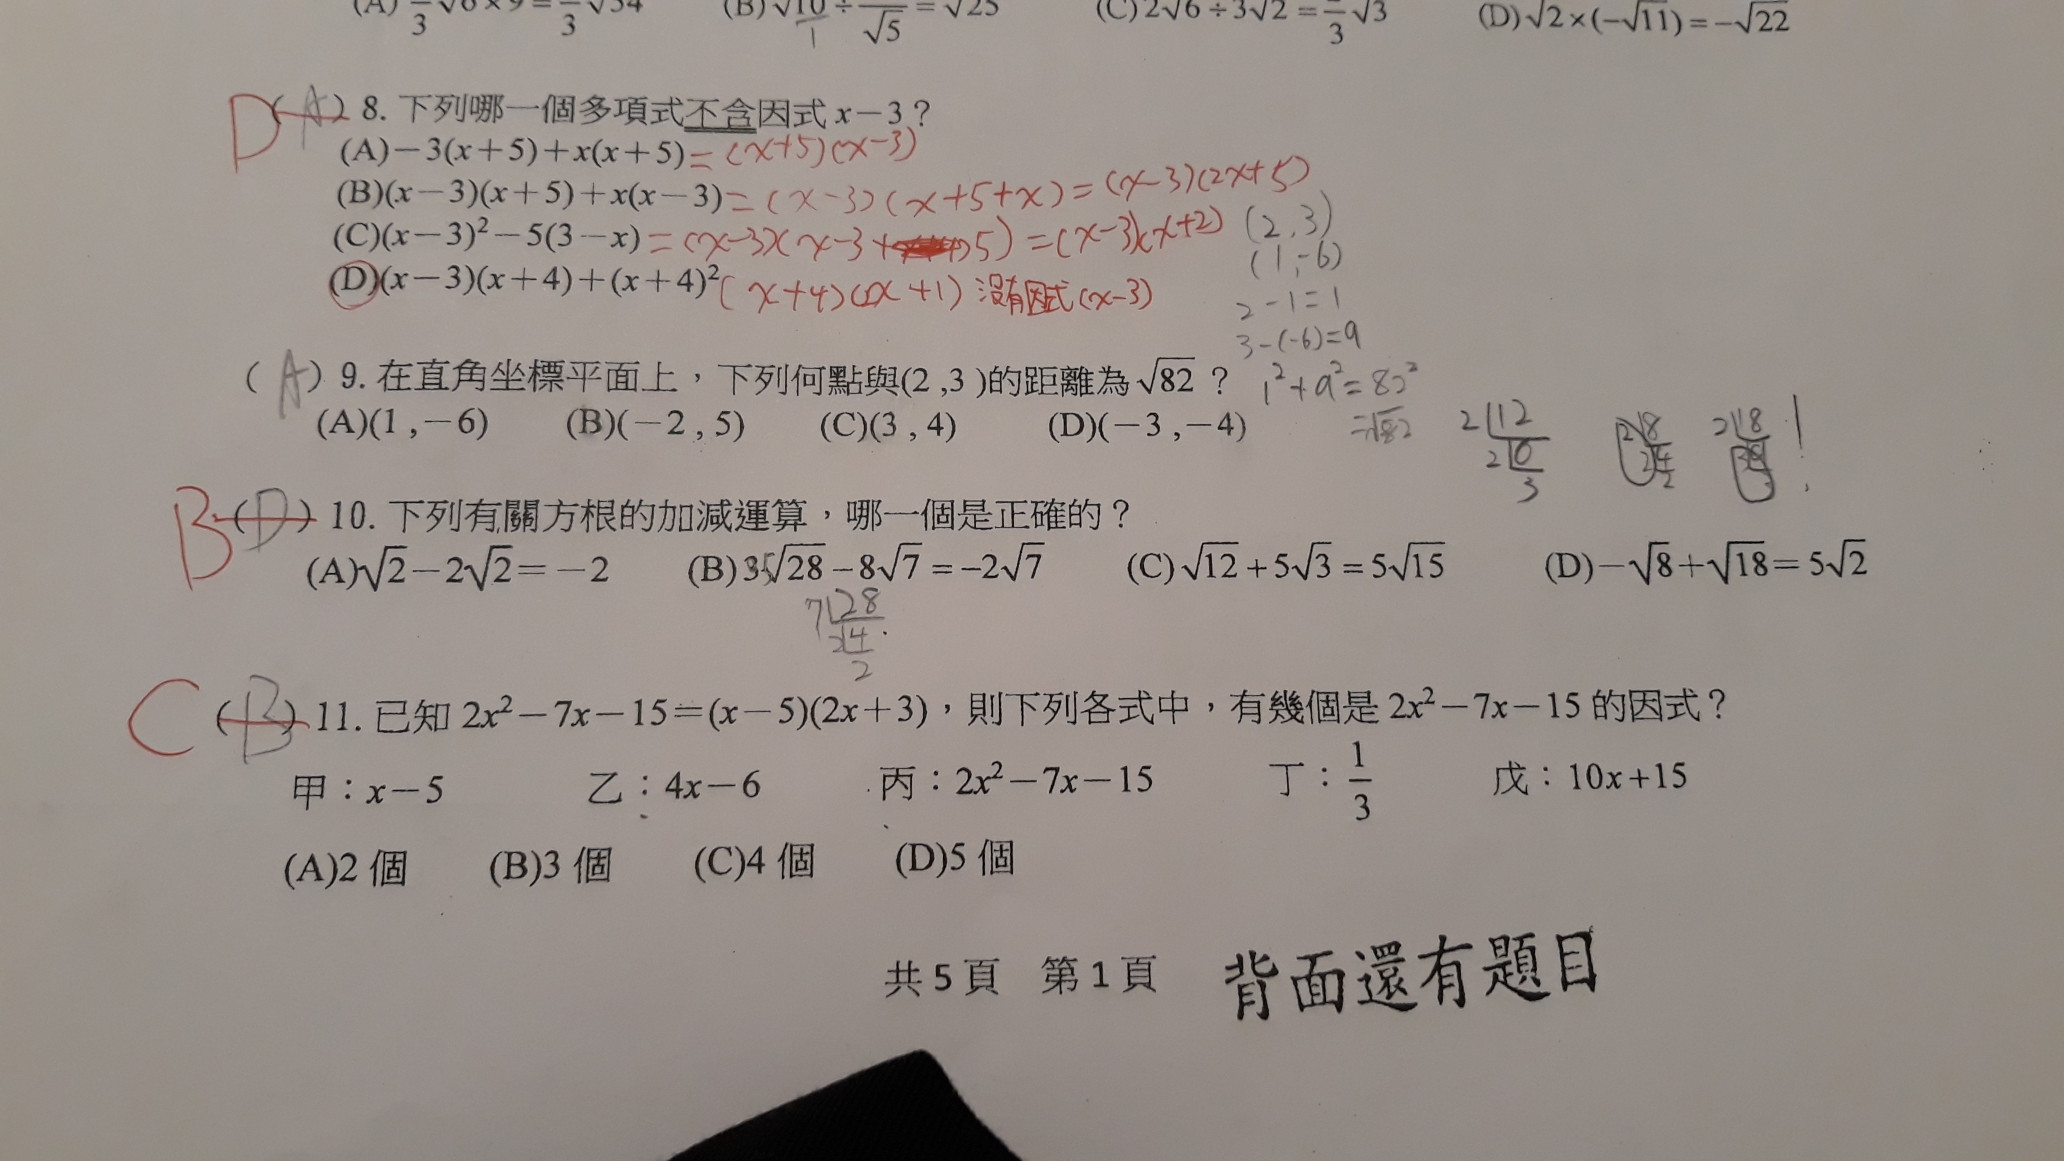 (A) /3 √6×9= /3 √54 (B)√10÷ /√5 =√25 (C)2√6÷3√2= /3 √3 (D)√2×(−√11)=−√22
1
D (A) 8. 下列哪一個多項式不含因式 x−3？
(A)−3(x+5)+x(x+5) =(x+5)(x-3)
(B)(x−3)(x+5)+x(x−3) =(x-3)(x+5+x)=(x-3)(2x+5)
(C)(x−3)²−5(3−x) =(x-3)(x-3+5)=(x-3)(x+2) (2,3)
(1,-6)
(D)(x−3)(x+4)+(x+4)² (x+4)(2x+1) 沒有因式(x-3)
2-1=1
3-(-6)=9
(A) 9. 在直角坐標平面上，下列何點與(2 ,3 )的距離為√82 ？ 1²+9²=82²
=√82
(A)(1 ,−6) (B)(−2 , 5) (C)(3 , 4) (D)(−3 ,−4)
2 12
2 6
3
2 8
2 4
2
2 18
!
B (D) 10. 下列有關方根的加減運算，哪一個是正確的？
(A)√2−2√2=−2 (B)3√28−8√7=−2√7 (C)√12+5√3=5√15 (D)−√8+√18=5√2
7 28
2 4
2
C (B) 11. 已知 2x²−7x−15=(x−5)(2x+3)，則下列各式中，有幾個是 2x²−7x−15 的因式？
甲：x−5 乙：4x−6 丙：2x²−7x−15 丁：1/3 戊：10x+15
(A)2 個 (B)3 個 (C)4 個 (D)5 個
共 5 頁 第 1 頁 背面還有題目